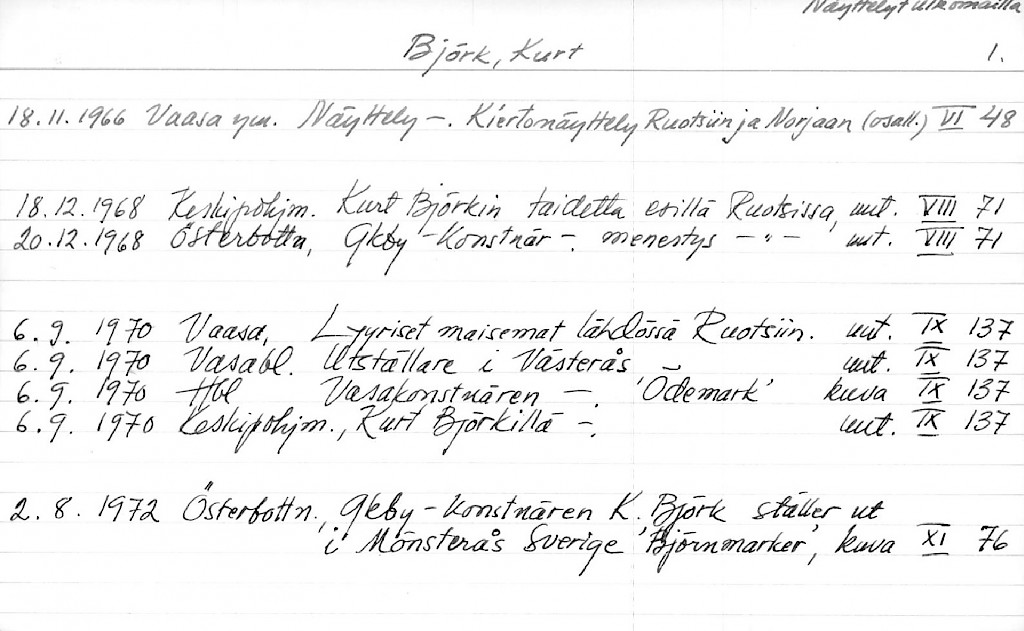 Näyttelyt ulkomailla
Björk, Kurt 1.
18.11.1966 Vaasa ym. Näyttely –. Kiertonäyttely Ruotsiin ja Norjaan (osall.) VI 48
18.12.1968 Keskipohjm. Kurt Björkin taidetta esillä Ruotsissa, uut. VIII 71
20.12.1968 Österbottn, Gkby-Konstnär –. menestys –"– uut. VIII 71
6.9. 1970 Vaasa, Lyyriset maisemat lähdössä Ruotsiin. uut. IX 137
6.9. 1970 Vasabl. Utställare i Västerås uut. IX 137
6.9. 1970 Hbl Vasakonstnären –. 'Ödemark' kuva IX 137
6.9. 1970 Keskipohjm., Kurt Björkillä –. uut. IX 137
2.8. 1972 Österbottn., Gkby-Konstnären K. Björk ställer ut
i Mönsterås Sverige 'Björnmarker', kuva XI 76